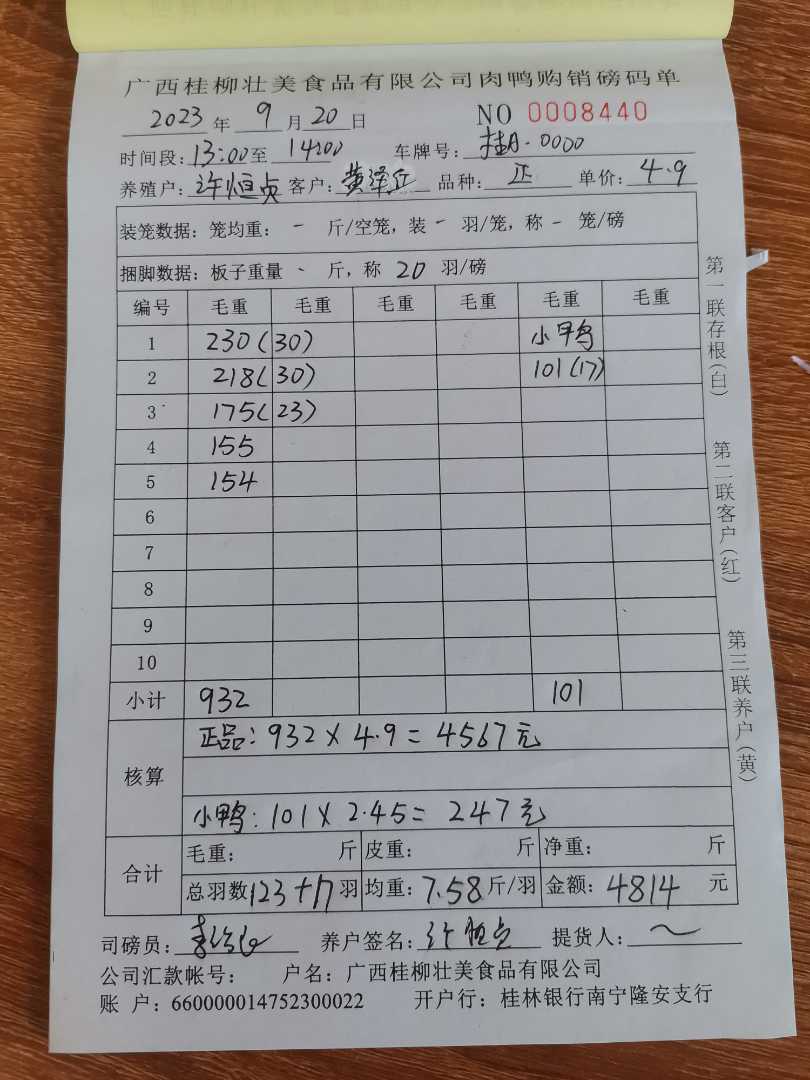 广西桂柳壮美食品有限公司肉鸭购销磅码单
2023年 9月20日 NO 0008440
时间段：13:00至 14:00 车牌号：桂A·0000
养殖户：许恒贞 客户：黄泽丘 品种：正 单价：4.9
装笼数据：笼均重：- 斤/空笼，装 - 羽/笼，称 - 笼/磅
捆脚数据：板子重量 、 斤，称 20 羽/磅
编号 毛重 毛重 毛重 毛重 毛重 毛重
1 230(30) 小甲鸟
2 218(30) 101(17)
3 175(23)
4 155
5 154
6
7
8
9
10
小计 932 101
核算
正品：932×4.9=4567元
小鸭：101×2.45=247元
合计
毛重： 斤 皮重： 斤 净重： 斤
总羽数123+17羽 均重：7.58斤/羽 金额：4814 元
司磅员： 养户签名：许恒贞 提货人：~
公司汇款帐号： 户名：广西桂柳壮美食品有限公司
账 户：660000014752300022 开户行：桂林银行南宁隆安支行
第一联存根(白)
第二联客户(红)
第三联养户(黄)